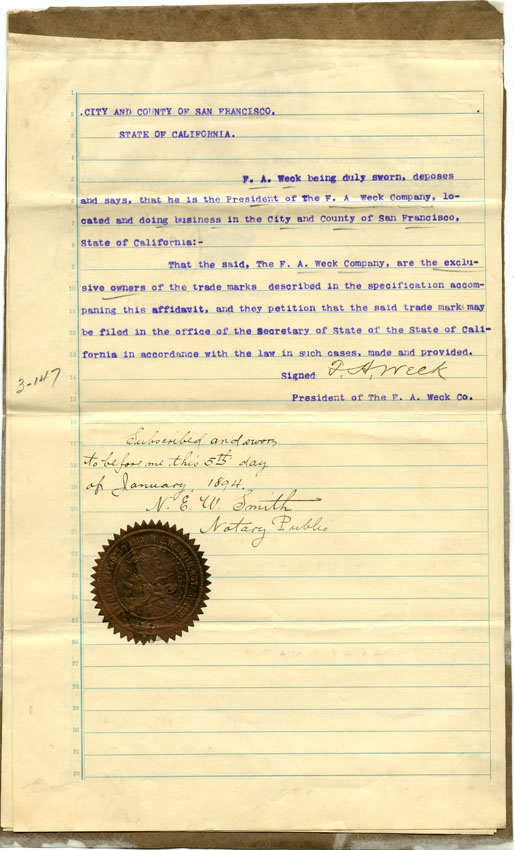 .CITY AND COUNTY OF SAN FRANCISCO,
STATE OF CALIFORNIA.
F. A. Weck being duly sworn, deposes
and says, that he is the President of The F. A Weck Company, lo-
cated and doing business in the City and County of San Francisco,
State of California:-
That the said, The F. A. Weck Company, are the exclu-
sive owners of the trade marks described in the specification accom-
paning this affidavit, and they petition that the said trade marks may
be filed in the office of the Secretary of State of the State of Cali-
fornia in accordance with the law in such cases, made and provided.
Signed F. A. Weck
3-147
President of The F. A. Weck Co.
Subscribed and sworn
to before me this 5th day
of January, 1894,
N. E. W. Smith
Notary Public